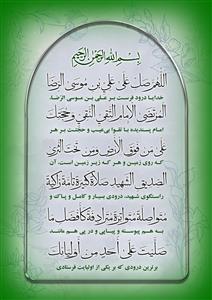 بسم الله الرحمن الرحیم
اللهم صل علی علی بن موسی الرضا
خدایا درود فرست بر علی بن موسی الرضا
المرتضی الإمام التقی النقی و حجتک
امام پسندیده با تقوا بی‌عیب و حجتت بر هر
علی من فوق الأرض ومن تحت الثری
که روی زمین و هر که زیر زمین است، آن
الصدیق الشهید صلاة کثیرة تامة زاکیة
راستگوی شهید، درودی بسیار و کامل و پاک و
متواصلة متواترة مترادفة کأفضل ما
به هم پیوسته و پیاپی و در پی هم مانند
صلیت علی أحد من أولیائک
برترین درودی که بر یکی از اولیایت فرستادی